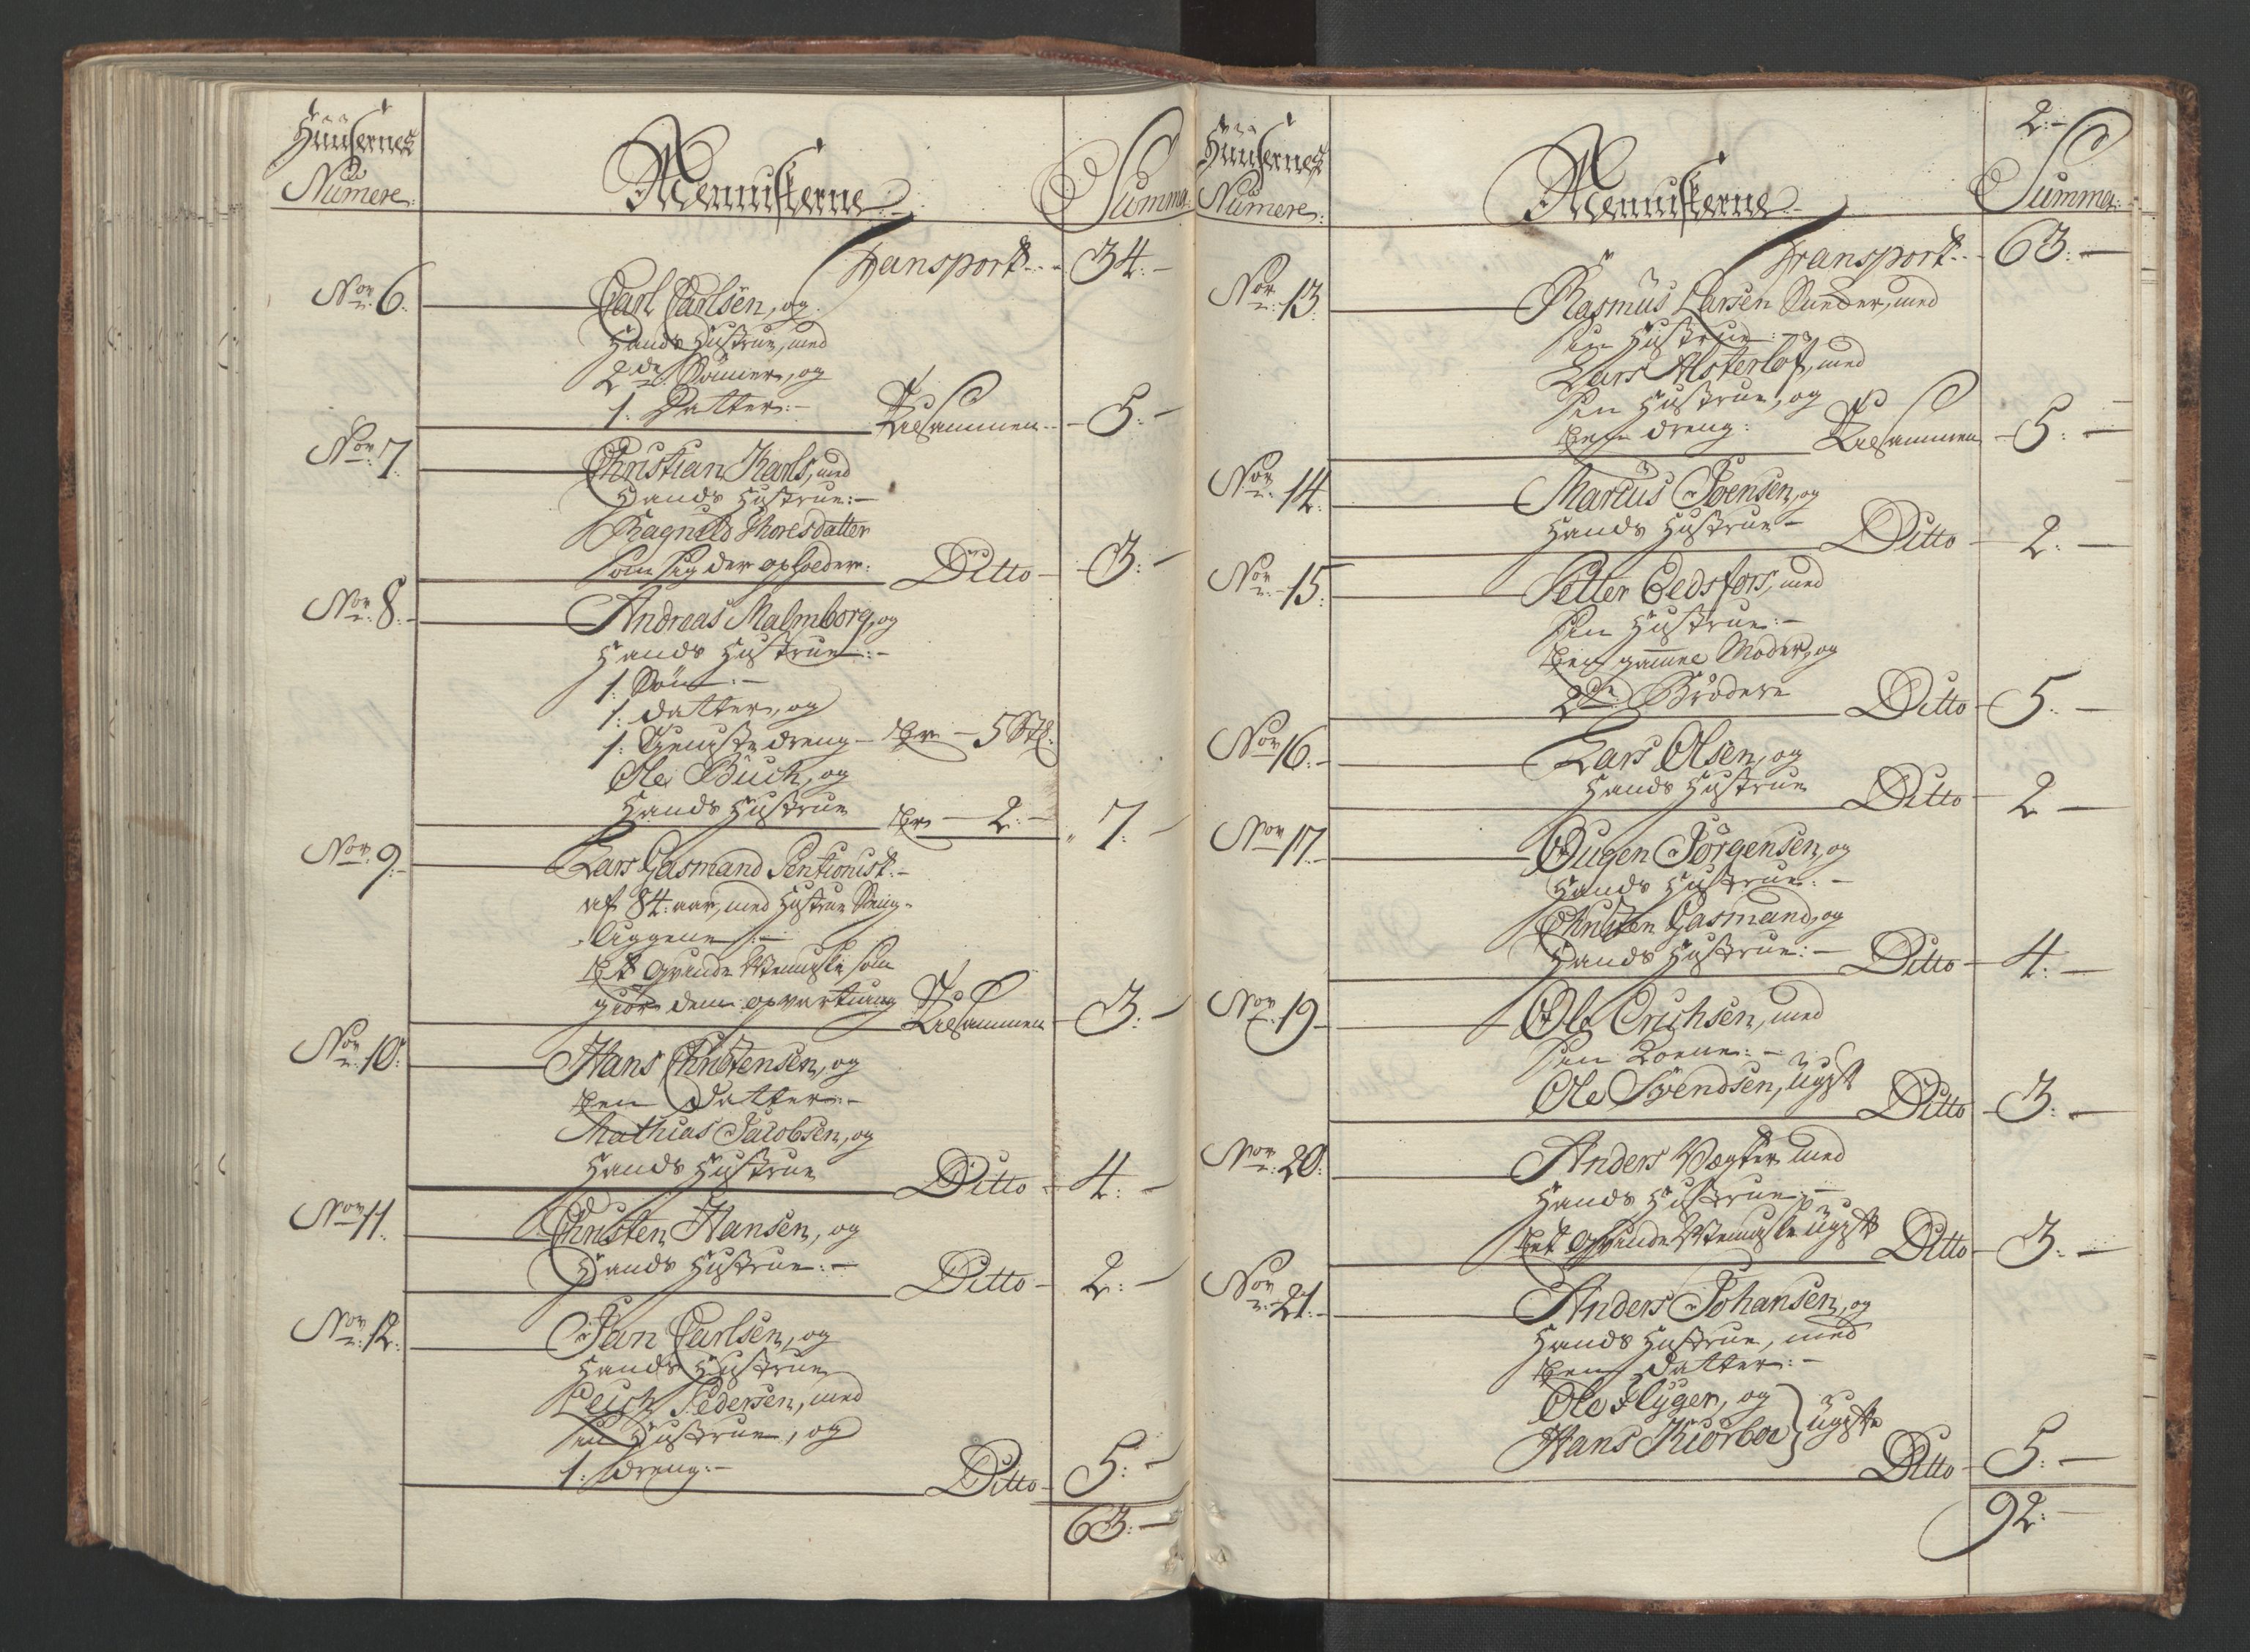 Huusernes
Numere:
Menniskerne
Summa
Transport 34:-
No 6. Carl Carlsen, og
Hands Hustrue, med
2de Sönner, og
1. Datter:- Tilsammen 5:-
No 7. Christian Karls, med
Hands Hustrue:-
Ragnild Thoresdatter
som sig der opholder: Ditto 3:-
No 8. Andreas Malmborg, og
Hands Hustrue:-
1. Sön:-
1. datter, og
1. Tieniste dreng 5
Ole Buch, og
Hands Hustrue 2:- 7:-
No 9. Lars Gasmand Pentionist:-
af 84: aar, med Hustrue Seng-
liggene:-
Et qvinde Menniske som
giör dem opvartning Tilsammen 3:-
No 10: Hans Christensen, og
Een Datter:-
Mathias Jacobsen, og
Hands Hustrue Ditto 4:-
No 11. Christen Hansen, og
Hands Hustrue:- Ditto 2:-
No 12. Jan Carlsen, og
Hands Hustrue
Pedersen, med
sin Hustrue, og
1. dreng:- Ditto 5:-
63:-
2:-
Huusernes
Numere:
Menniskerne
Summa:
Transport 63:-
No 13. Rasmus Larsen, med
sin Hustrue:-
Lars Alsterlöf, med
sin Hustrue, og
Een dreng: Tilsammen 5:-
No 14. Marcus Svensen, og
Hands Hustrue- Ditto 2:-
No 15. Petter Eedsfors, med
sin Hustrue:-
Een gammel Moder, og
2de Brödere Ditto 5:-
No 16:- Lars Olsen, og
Hands Hustrue Ditto 2-
No 17:- Ougen Jörgensen, og
Hands Hustrue:-
Christen Gasmand, og
Hands Hustrue:- Ditto 4:-
No 19- Ole Erichsen, med
sin Kone:-
Ole Svendsen, ugift Ditto 3:-
No 20: Anders Vegter med
Hands Hustrue:-
Et qvinde Menniske ugift Ditto 3:-
No 21:- Anders Johansen, og
Hands Hustrue, med
Een datter:-
Ole Flyger, og
Hans Kiörboe } ugifte Ditto 5:-
92:-